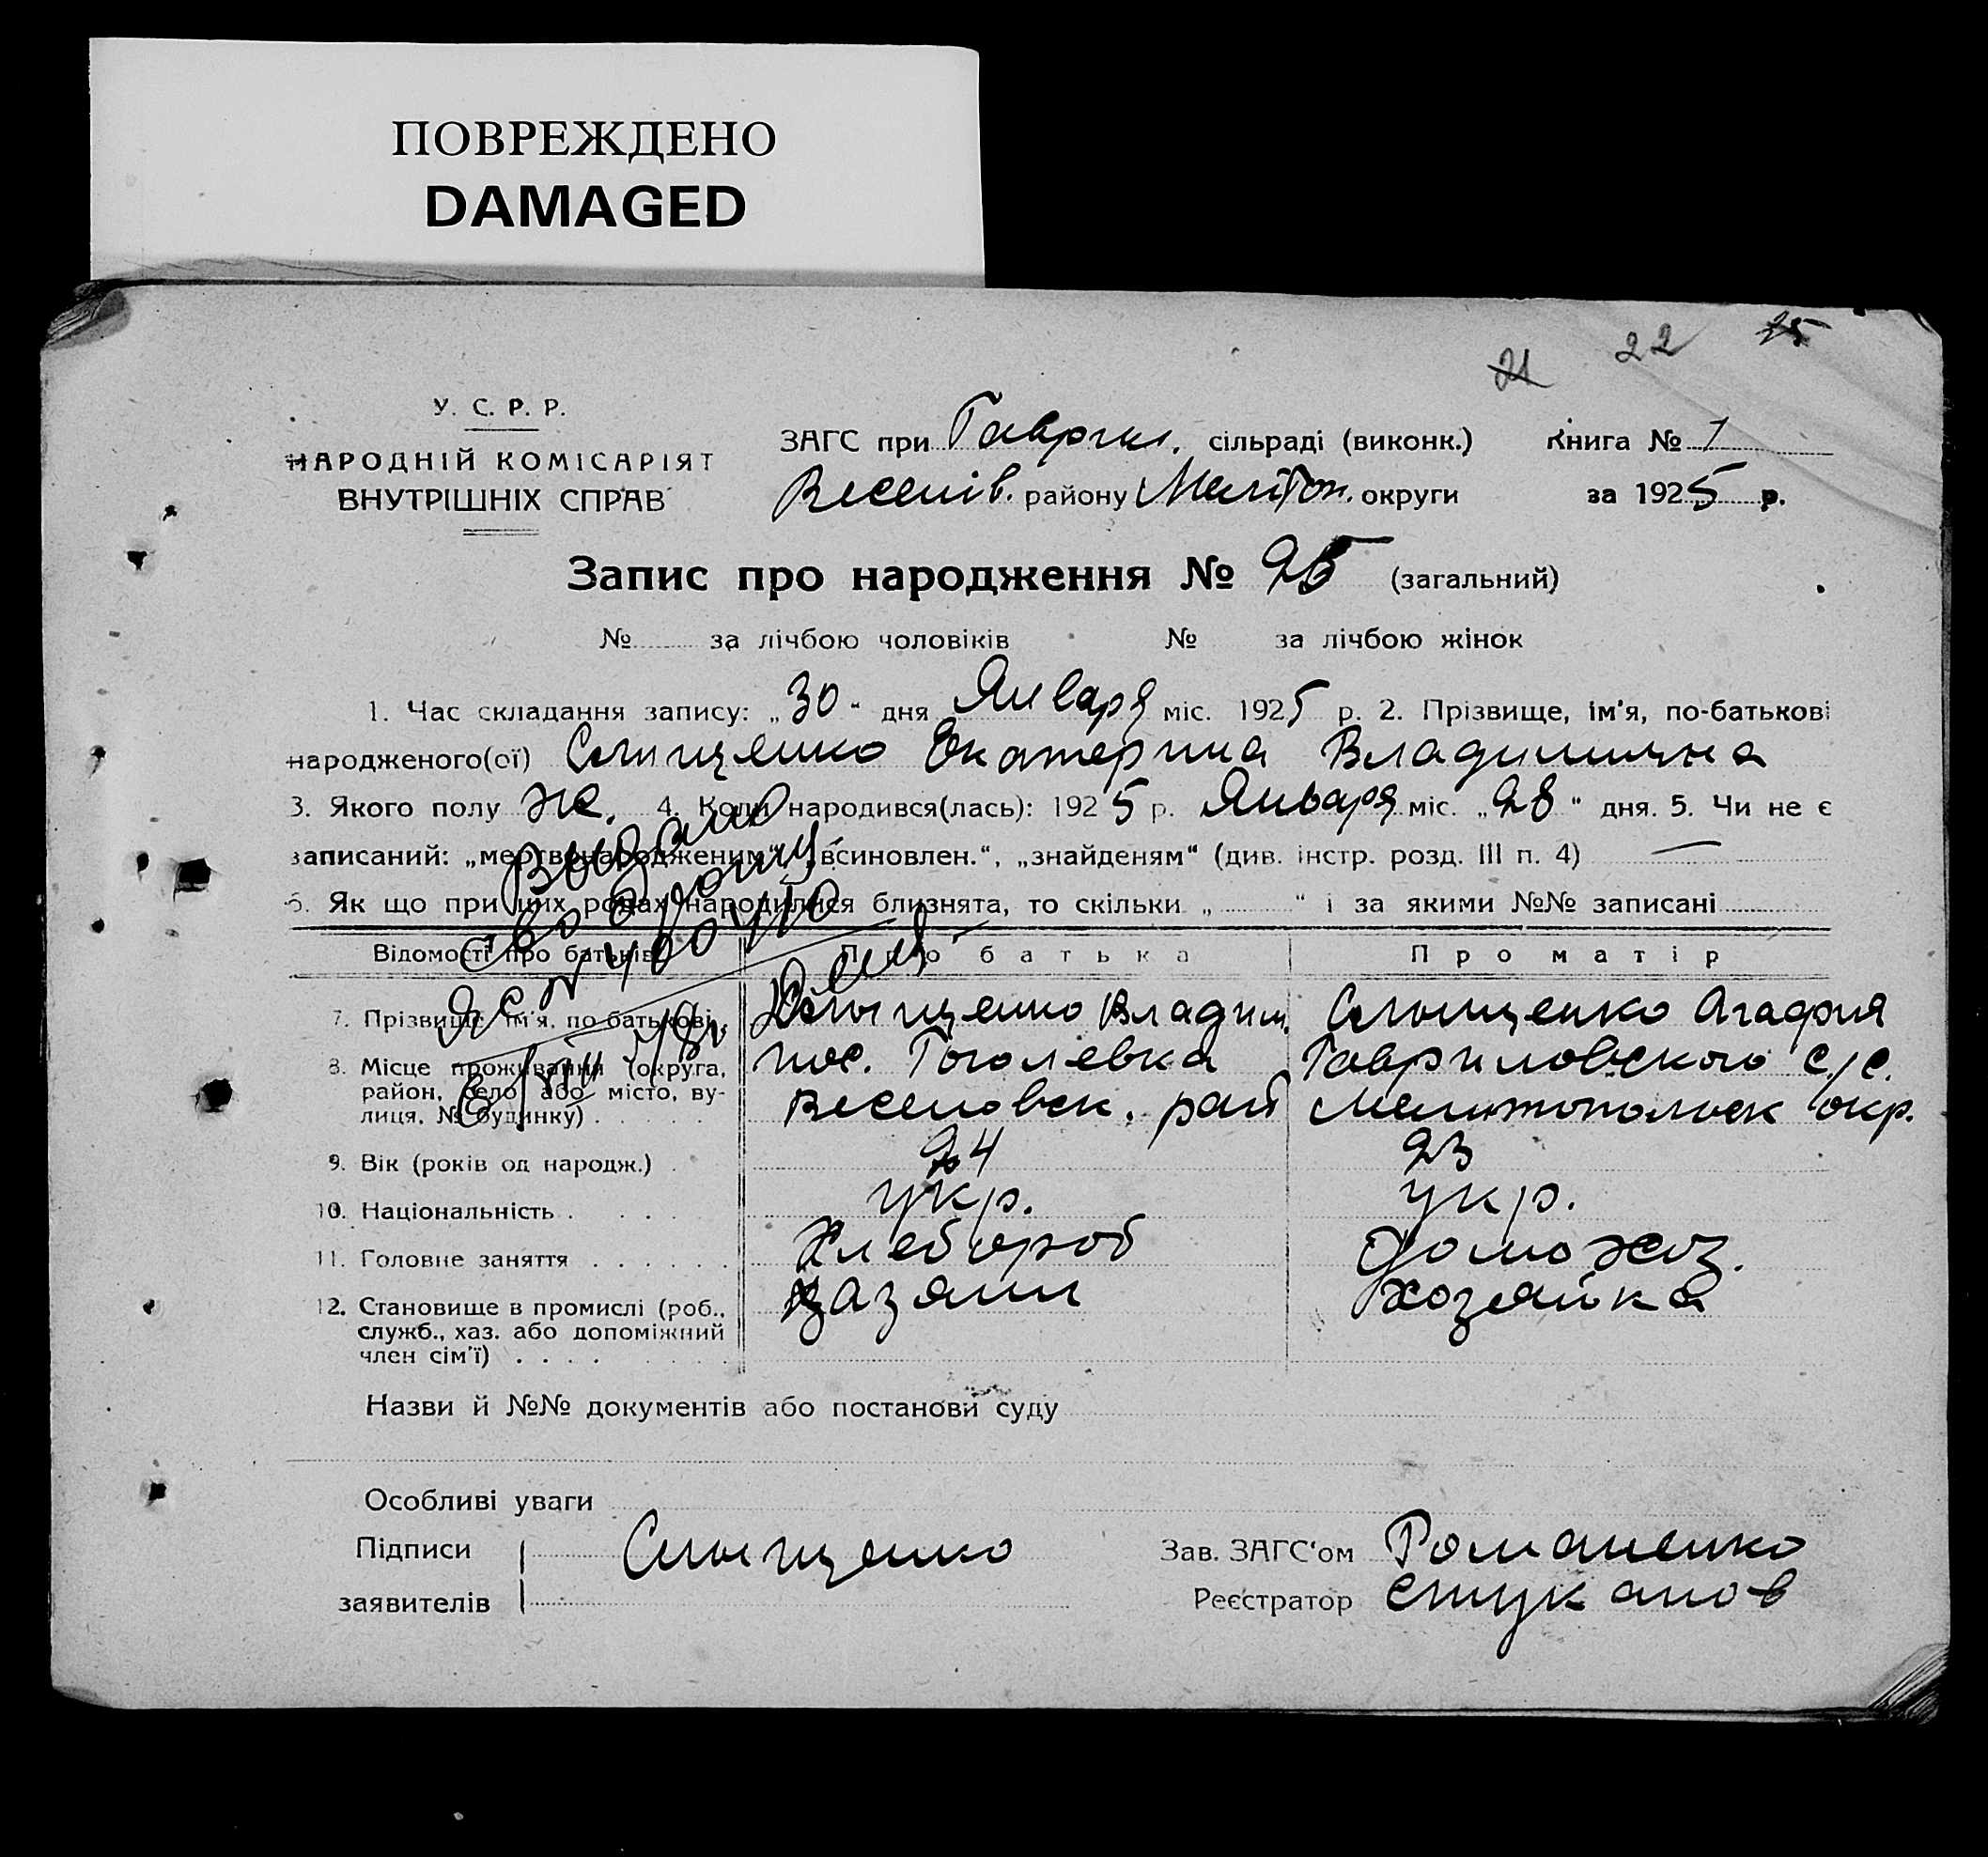 ПОВРЕЖДЕНО
DAMAGED
21 22 25
У. С. Р. Р.
НАРОДНІЙ КОМІСАРІЯТ
ВНУТРІШНІХ СПРАВ
ЗАГС при Гаврил. сільраді (виконк.) Книга № 1
Веселів. району Мелітоп. округи за 1925 р.
Запис про народження № 25 (загальний)
№ за лічбою чоловіків № за лічбою жінок
1. Час складання запису: „30" дня Января міс. 1925 р. 2. Прізвище, ім'я, по-батькові
народженого(ої) Слющенко Екатерина Владимирна
3. Якого полу Же. 4. Коли народився(лась): 1925 р. Января міс. „28" дня. 5. Чи не є
записаний: „мертвонародженим", „всиновлен.", „знайденям" (див. інстр. розд. III п. 4) —
6. Як що при цих родах народилися близнята, то скільки „ " і за якими №№ записані
Выдано
Відомості про батьків Про батька Про матір
7. Прізвище, ім'я, по-батькові. Слющенко Владим. Слющенко Агафия
8. Місце проживання (округа, пос. Гоголевка Гавриловского с/с.
район, село або місто, ву- Веселовск. рай Мелитопольск окр.
лиця, № будинку)
9. Вік (років од народж.) 24 23
10. Національність укр. укр.
11. Головне заняття Хлебороб Домохоз.
12. Становище в промислі (роб., хазяин хозяйка
служб., хаз. або допоміжний
член сім'ї)
Назви й №№ документів або постанови суду
Особливі уваги
Підписи Слющенко Зав. ЗАГС'ом Романенко
заявителів Реєстратор Стуканов